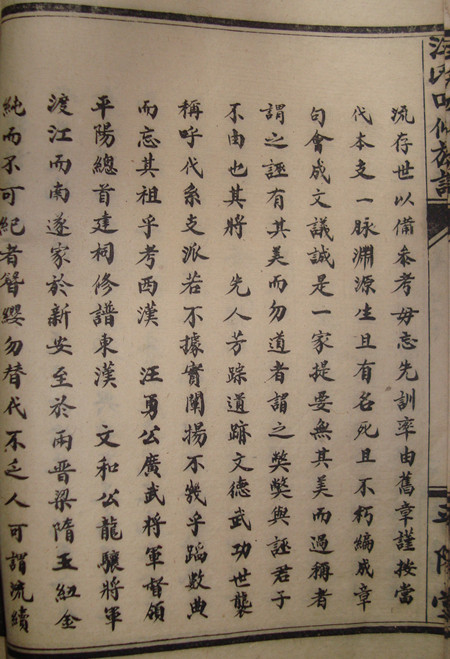 平陽堂
流存世以備參考毋忘先訓率由舊章謹按當
代本支一脉淵源生且有名死且不朽編成章
句會成文議誠是一家提要無其美而過稱者
謂之誣有其美而勿道者謂之獘獘與誣君子
不由也其將　先人芳踪道跡文德武功世襲
稱呼代系支派若不據實闡揚不幾乎蹈數典
而忘其祖乎考西漢　汪勇公廣武將軍督領
平陽總首建祠修譜東漢　文和公龍驤將軍
渡江而南遂家於新安至於兩晋梁隋玉紐金
純而不可紀者簪纓勿替代不乏人可謂流續